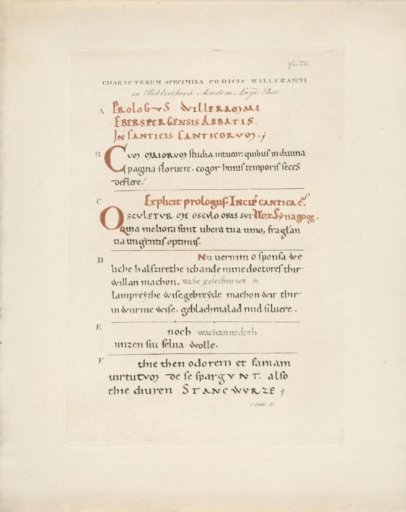 pl. IV.
CHARACTERUM SPECIMINA CODICIS WILLERAMMI
ex Bibliothecâ Academ. Lugd. Bat.
A PROLOGUS WILLERAMMI
EBERSPERGENSIS ABBATIS
IN CANTICIS CANTICORUM.
B Cum maiorum studia intuear, quibus in diuina
pagina floruere, cogor huius temporis feces
deflere.
C Explicit prologus. Incip cantica
Osculetur me osculo oris sui Vox Synagogę.
Quia meliora sunt ubera tua uino, fraglan
tia ungentis optimis.
D Nu uernim o sponsa we
liche halszierethe ich ande mine doctores thir
willan machon.
lampreythe wise gebreyde machon wir thir
in wurme wise. geblachmalad mid siluere.
E noch wachan no doth
unzen siu selua wolle.
F thie then odorem et famam
uirtutum de se spargunt. also
thie diuren STANCWURZE